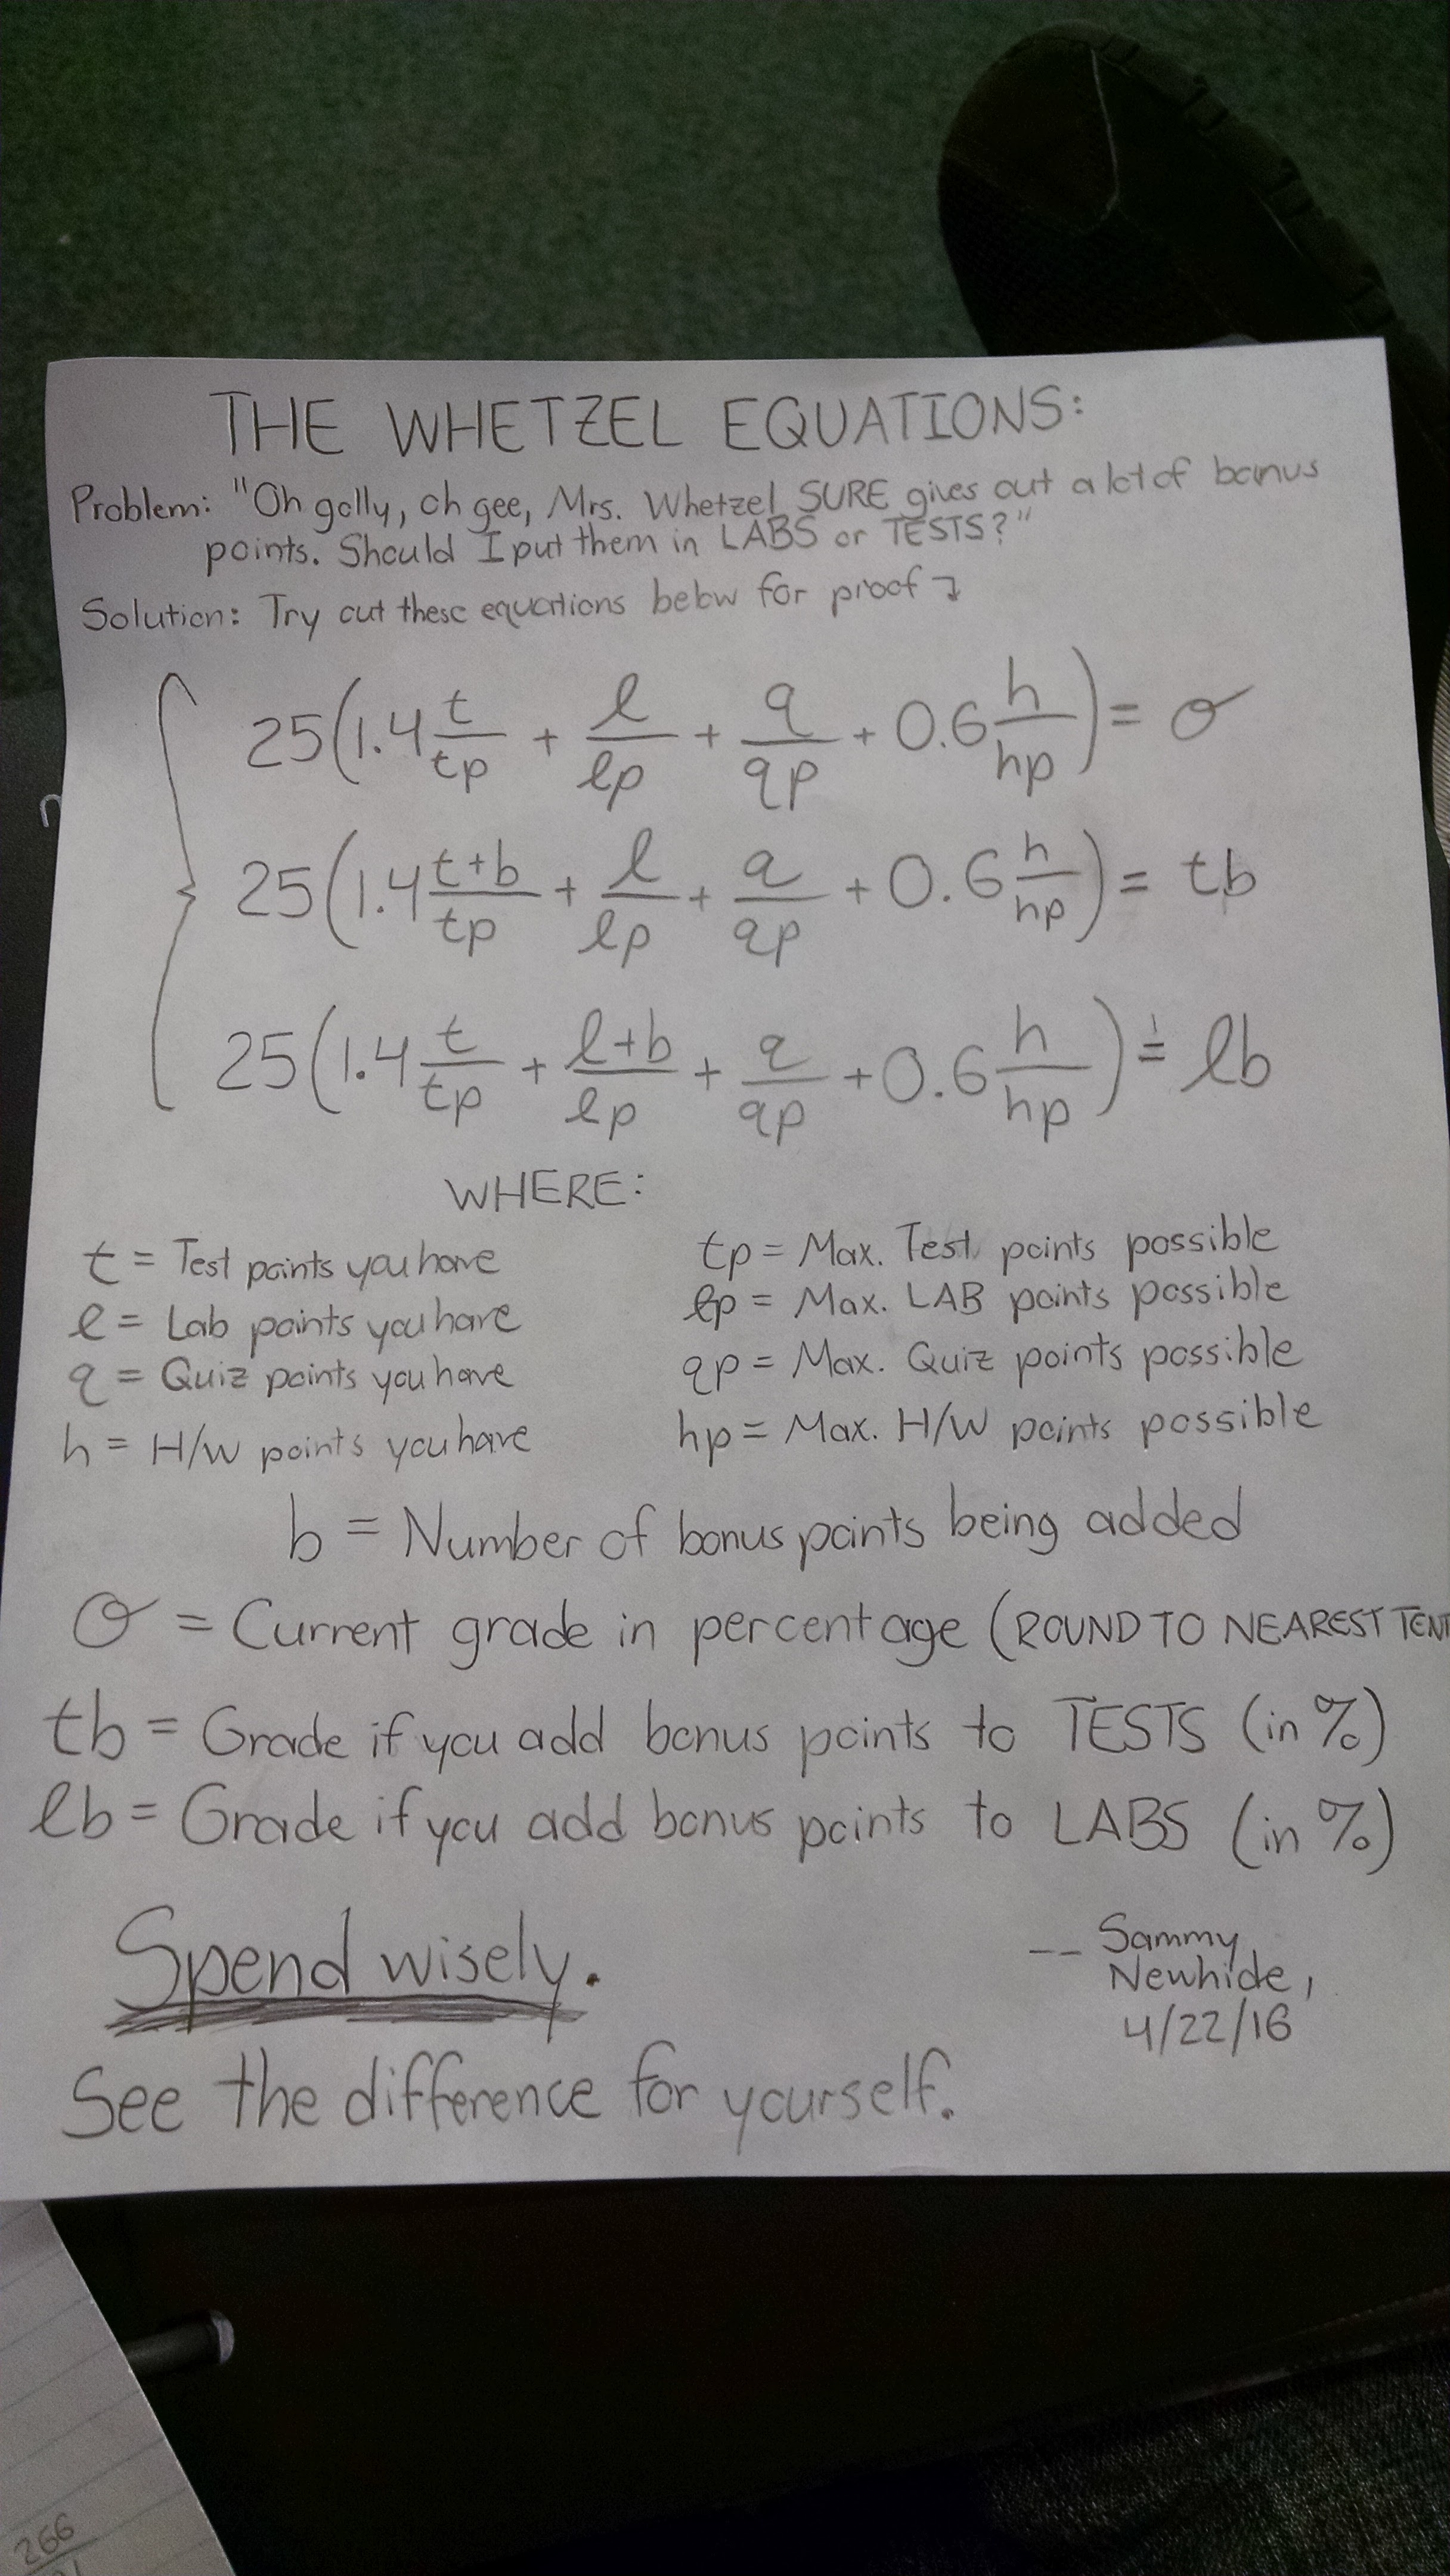 THE WHETZEL EQUATIONS:
Problem: "Oh golly, oh gee, Mrs. Whetzel SURE gives out a lot of bonus
points. Should I put them in LABS or TESTS?"
Solution: Try out these equations below for proof ↴
25(1.4 t/tp + l/lp + q/qp + 0.6 h/hp) = σ
25(1.4 (t+b)/tp + l/lp + q/qp + 0.6 h/hp) = tb
25(1.4 t/tp + (l+b)/lp + q/qp + 0.6 h/hp) = lb
WHERE:
t = Test points you have
tp = Max. Test points possible
l = Lab points you have
lp = Max. LAB points possible
q = Quiz points you have
qp = Max. Quiz points possible
h = H/W points you have
hp = Max. H/W points possible
b = Number of bonus points being added
σ = Current grade in percentage (ROUND TO NEAREST TENT
tb = Grade if you add bonus points to TESTS (in %)
lb = Grade if you add bonus points to LABS (in %)
Spend wisely.
-- Sammy
Newhide,
4/22/16
See the difference for yourself.
266